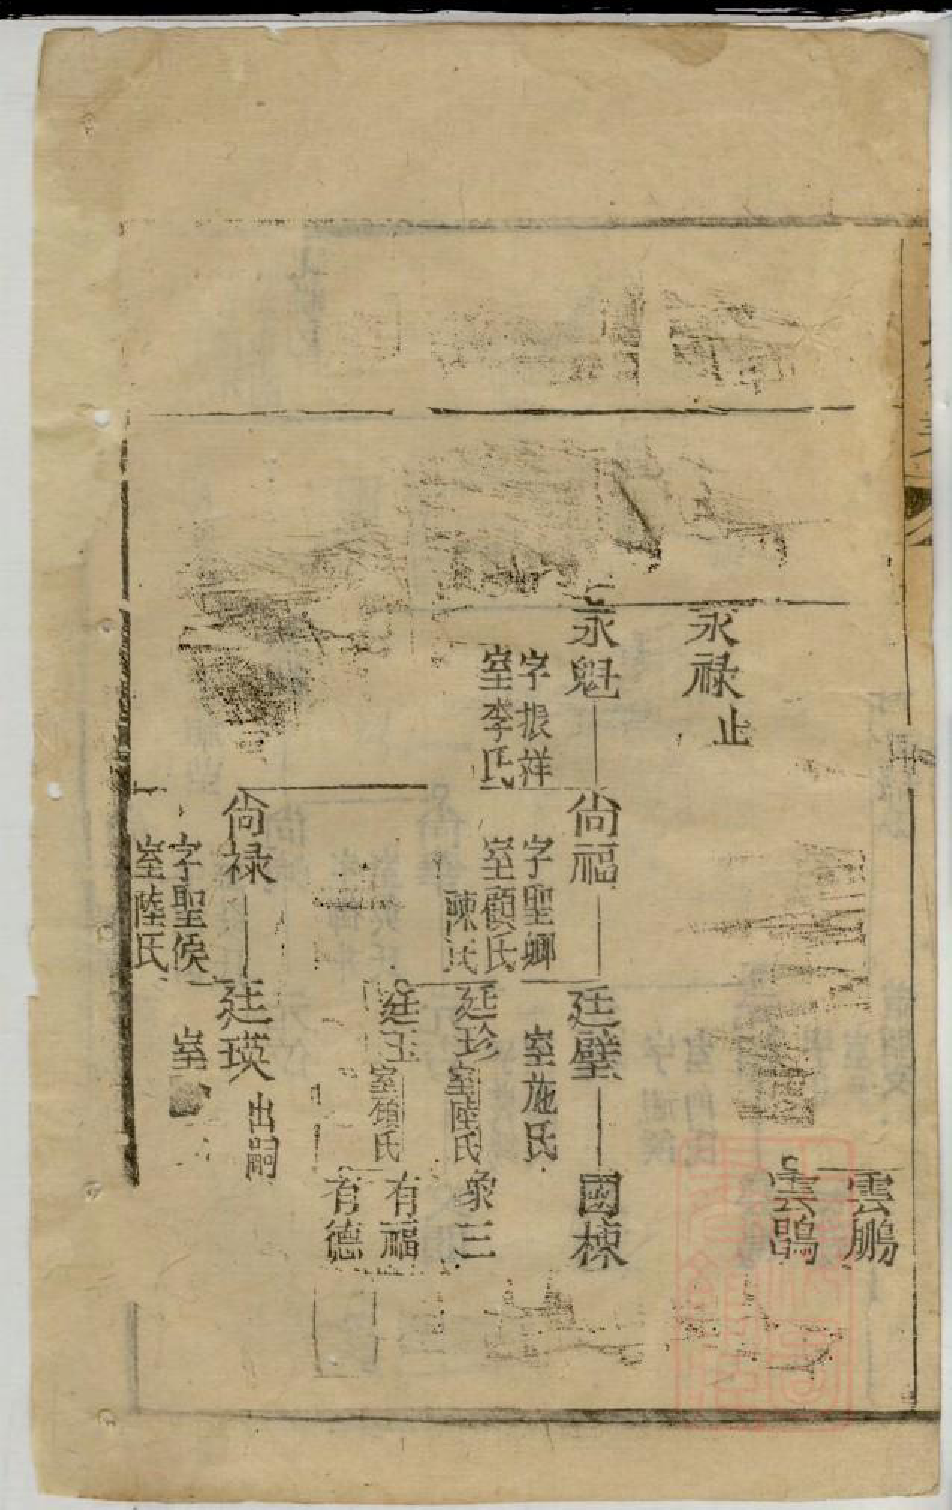 永禄
止
永魁
字振祥
室李氏
尙福
字聖卿
室顧氏
陳氏
尙禄
字聖侯
室陸氏
廷璧
室施氏
廷珍
室陸氏
廷玉
室須氏
廷瑛
出嗣
室
雲鵬
雲鵠
國棟
象三
有福
有德